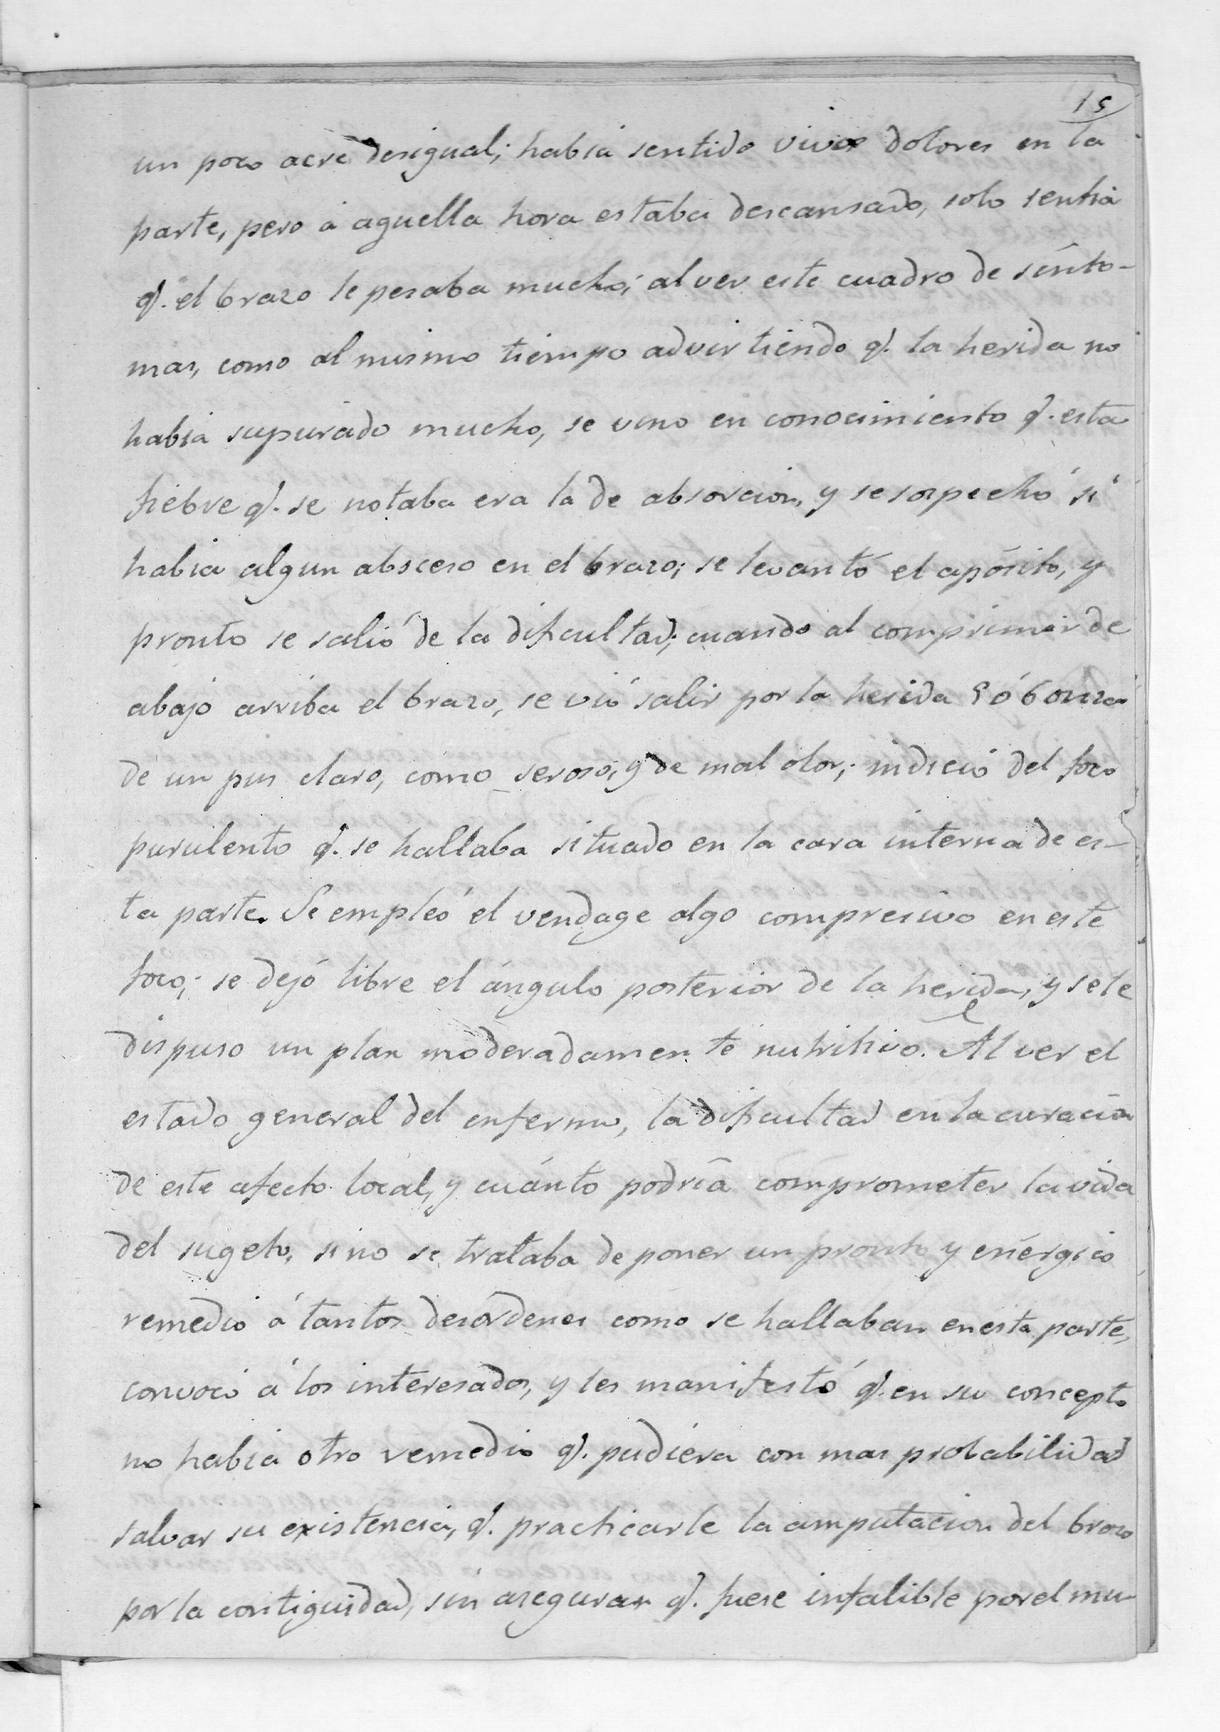 15
un poco acre desigual; habia sentido vivos dolores en la
parte, pero á aquella hora estaba descansado, solo sentia
q.e el brazo le pesaba mucho; al ver este cuadro de sínto-
mas, como al mismo tiempo advirtiendo q.e la herida no
habia supurado mucho, se vino en conocimiento q.e esta
fiebre q.e se notaba era la de absorcion, y se sospechó si
habia algun absceso en el brazo; se levantó el apósito, y
pronto se salió de la dificultad; cuando al comprimir de
abajo arriba el brazo, se vió salir por la herida 5 ó 6 onzas
de un pus claro, como seroso, y de mal olor; indicio del foco
purulento q.e se hallaba situado en la cara interna de es-
ta parte. Se empleó el vendage algo compresivo en este
foco; se dejó libre el ángulo posterior de la herida, y se le
dispuso un plan moderadamente nutritivo. Al ver el
estado general del enfermo, la dificultad en la curacion
de este afecto local, y cuánto podría comprometer la vida
del sugeto, si no se trataba de poner un pronto y enérgico
remedio á tantos desórdenes como se hallaban en esta parte,
convocó á los interesados, y les manifestó q.e en su concepto
no habia otro remedio q.e pudiera con mas probabilidad
salvar su existencia, q.e practicarle la amputacion del brazo
por la contiguidad, sin asegurar q.e fuese infalible por el mu-